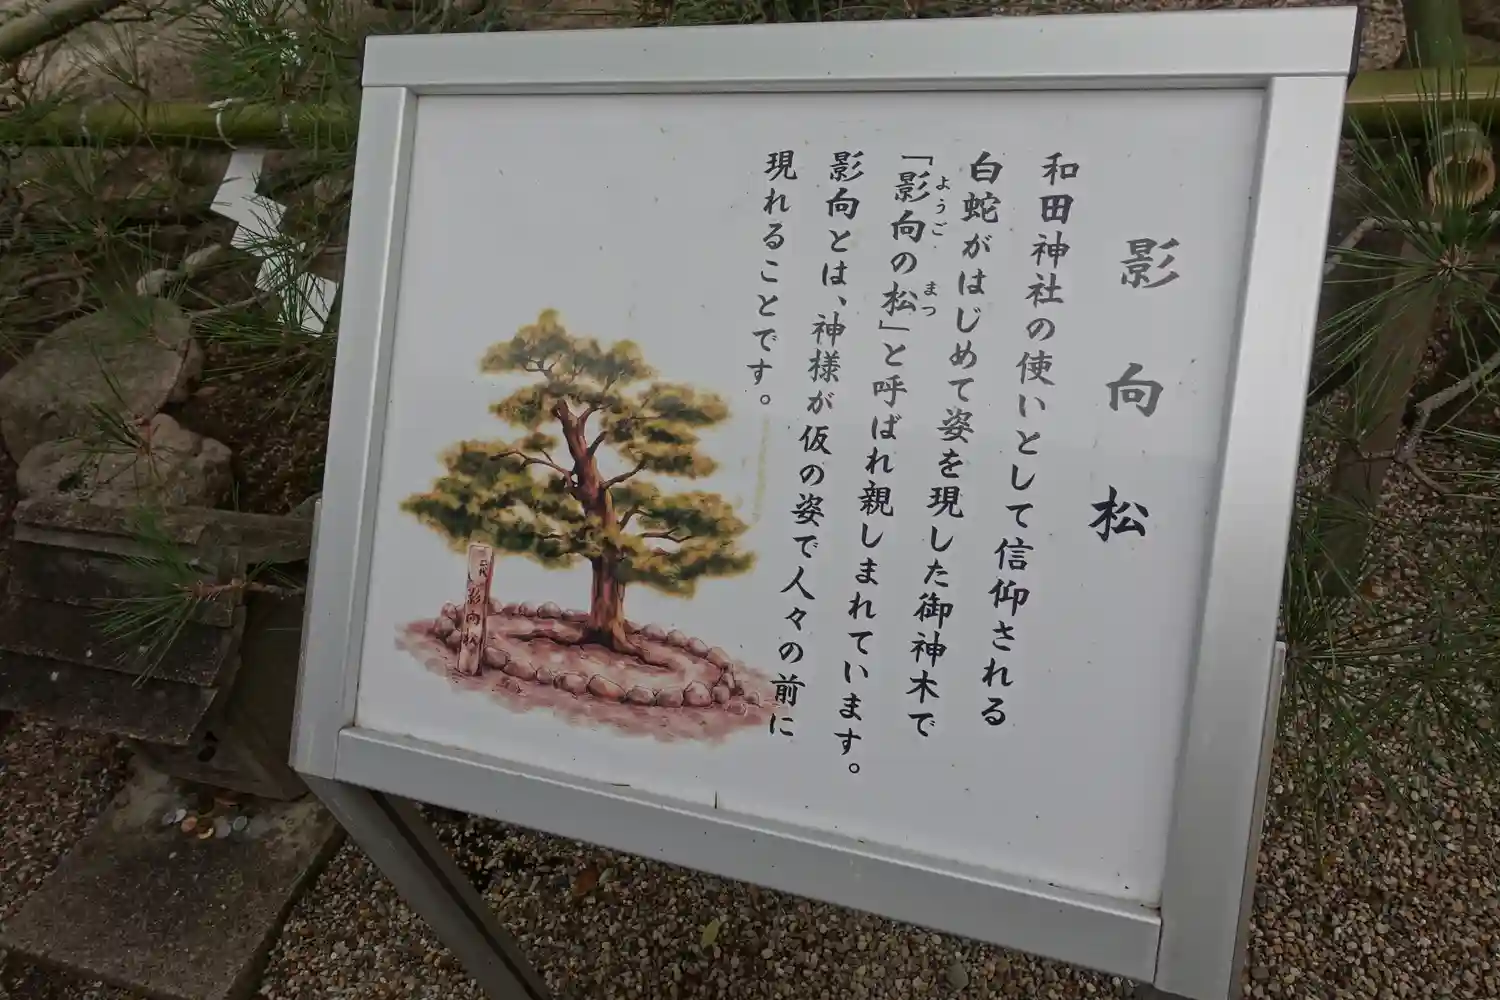 影向松
和田神社の使いとして信仰される
白蛇がはじめて姿を現した御神木で
「影向の松」と呼ばれ親しまれています。
ようご
まつ
影向とは、神様が仮の姿で人々の前に
現れることです。
二代 影向松